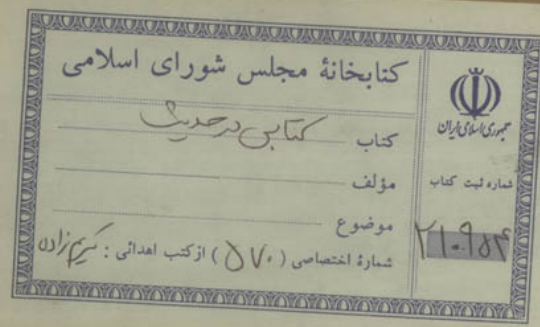 کتابخانهٔ مجلس شورای اسلامی
کتاب کتابی در حدیث
مؤلف
موضوع
شمارهٔ اختصاصی ( ۵۷۰ ) از کتب اهدائی : کریم‌زاده
جمهوری اسلامی ایران
شماره ثبت کتاب
۲۱۰۹۵۴